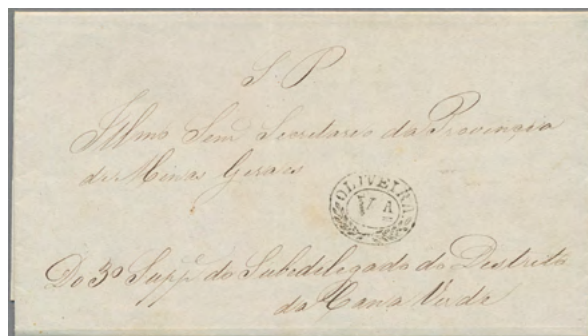 S. P
Illmo Senr Secretario da Provincia
de Minas Geraes
OLIVEIRA
VA
Do 3º Supp.e do Subdelegado do Destrito
da Cana Verde